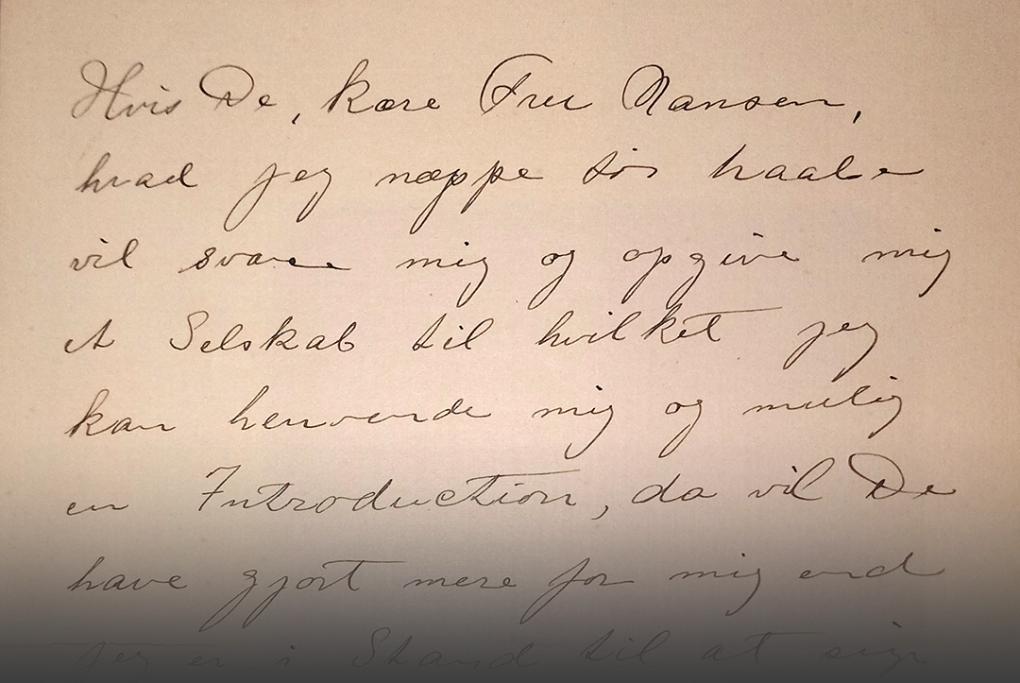 Hvis De, kære Fru Nansen,
hvad jeg næppe tør haabe
vil svare mig og opgive mig
et Selskab til hvilket jeg
kan henvende mig og mulig
en Introduction, da vil De
have gjort mere for mig end
jeg er i Stand til at sige